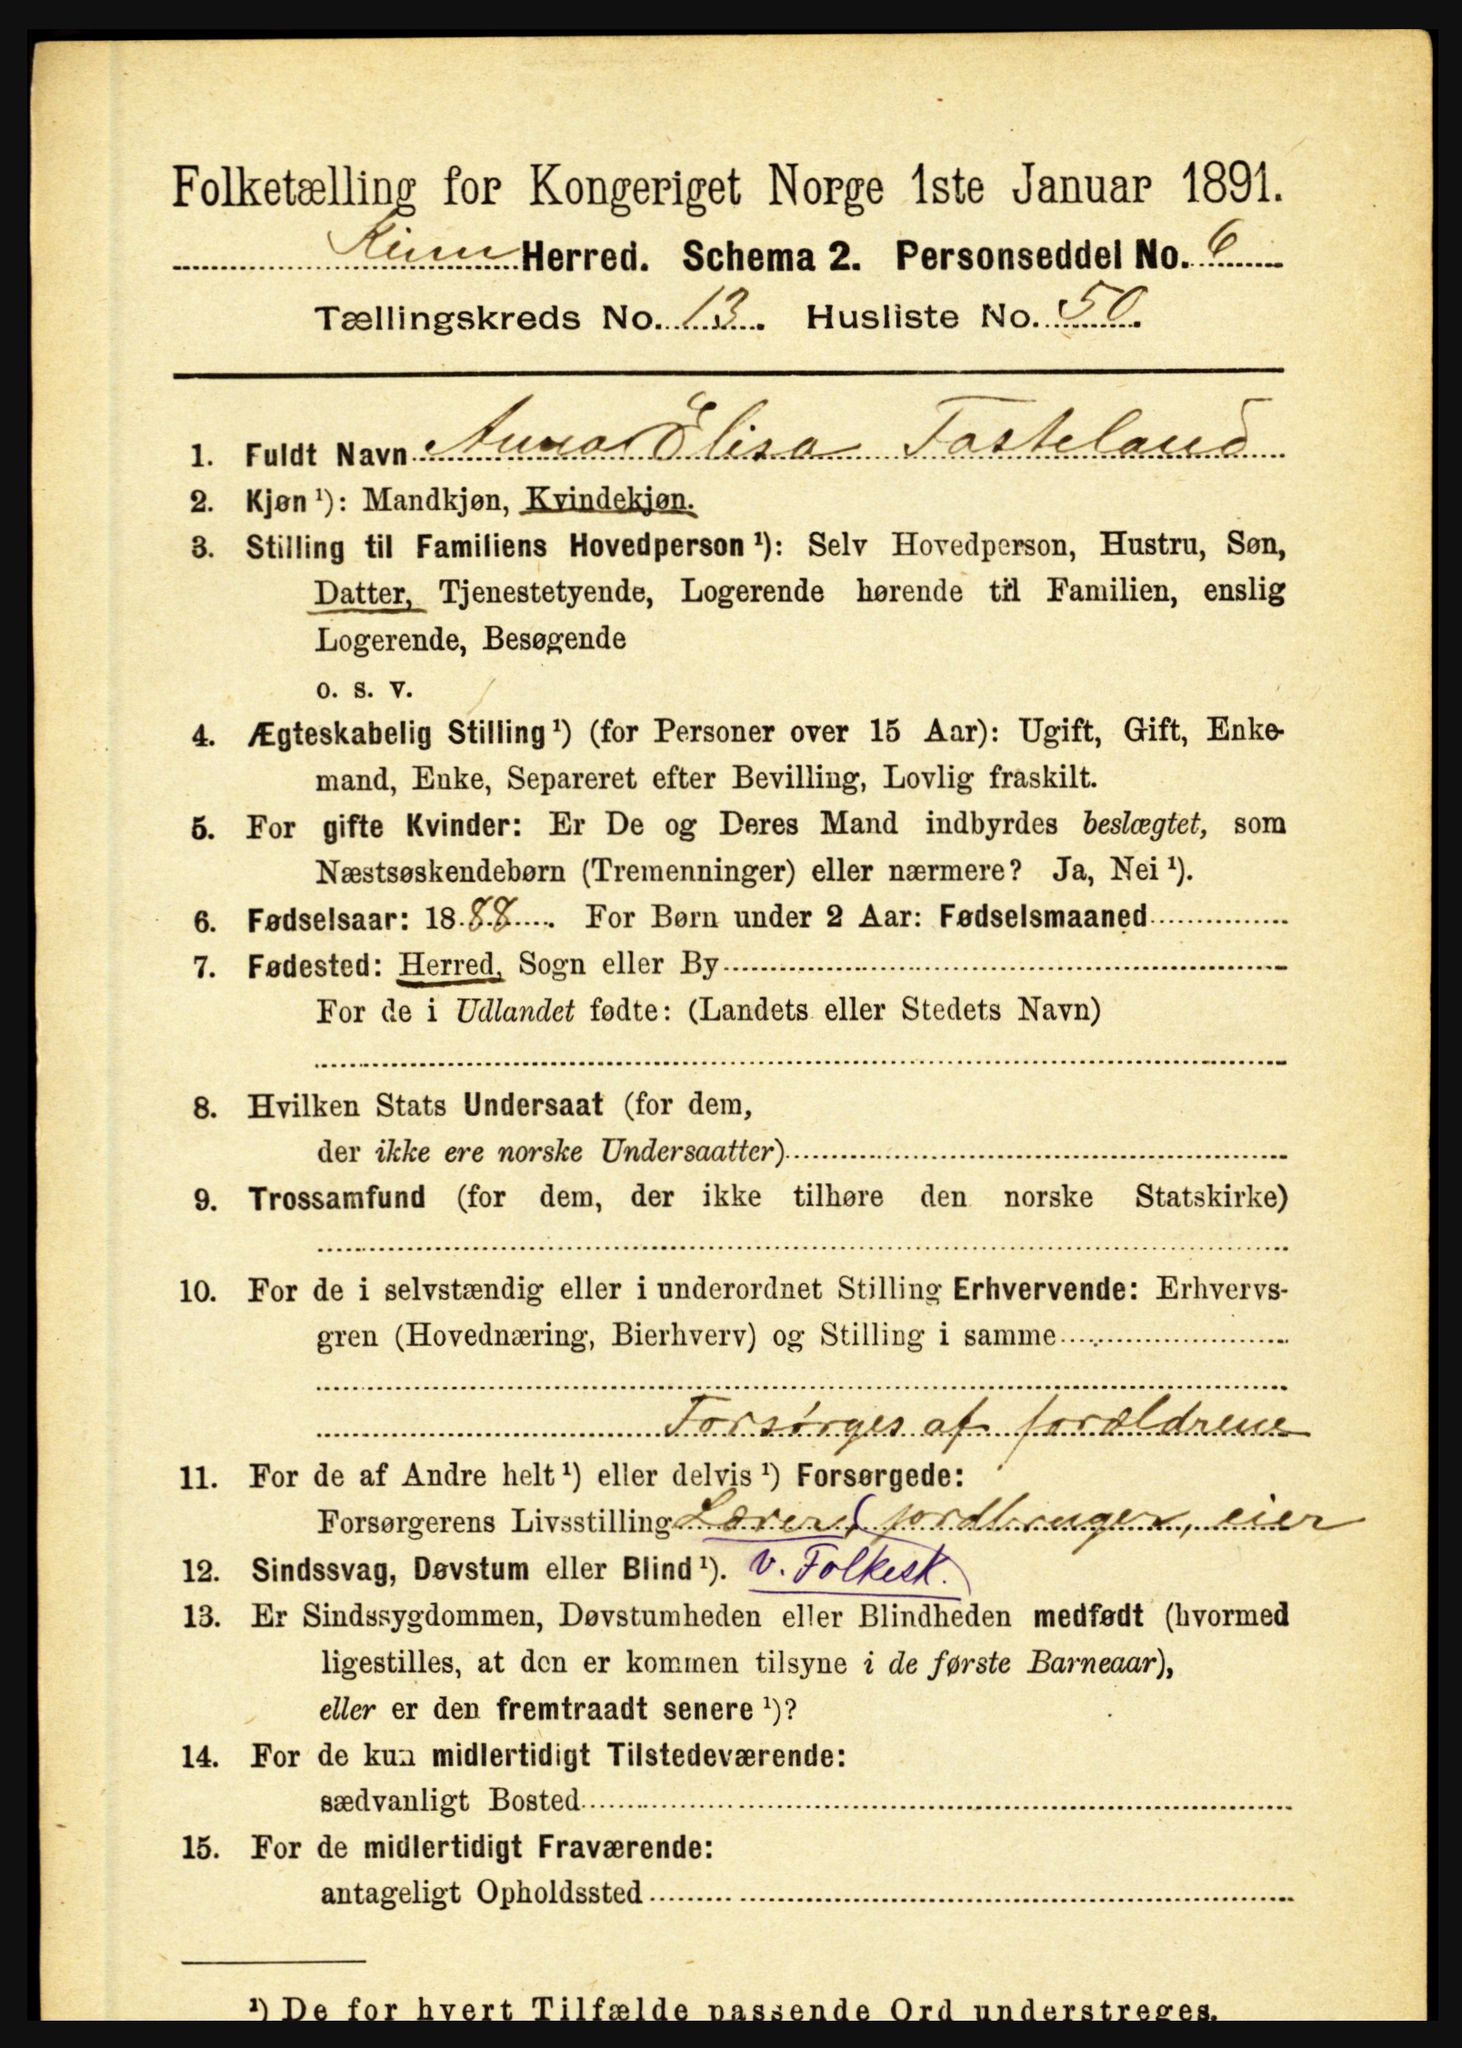 Folketælling for Kongeriget Norge 1ste Januar 1891.
Kinn Herred. Schema 2. Personseddel No. 6
Tællingskreds No. 13. Husliste No. 50.
1. Fuldt Navn Anna Elisa Tasteland
2. Kjøn ¹): Mandkjøn, Kvindekjøn.
3. Stilling til Familiens Hovedperson ¹): Selv Hovedperson, Hustru, Søn,
Datter, Tjenestetyende, Logerende hørende til Familien, enslig
Logerende, Besøgende
o. s. v.
4. Ægteskabelig Stilling ¹) (for Personer over 15 Aar): Ugift, Gift, Enke-
mand, Enke, Separeret efter Bevilling, Lovlig fraskilt.
5. For gifte Kvinder: Er De og Deres Mand indbyrdes beslægtet, som
Næstsøskendebørn (Tremenninger) eller nærmere? Ja, Nei ¹).
6. Fødselsaar: 1888. For Børn under 2 Aar: Fødselsmaaned
7. Fødested: Herred, Sogn eller By
For de i Udlandet fødte: (Landets eller Stedets Navn)
8. Hvilken Stats Undersaat (for dem,
der ikke ere norske Undersaatter)
9. Trossamfund (for dem, der ikke tilhøre den norske Statskirke)
10. For de i selvstændig eller i underordnet Stilling Erhvervende: Erhvervs-
gren (Hovednæring, Bierhverv) og Stilling i samme
Forsørges af forældrene
11. For de af Andre helt ¹) eller delvis ¹) Forsørgede:
Forsørgerens Livsstilling Lærer, jordbruger, eier
12. Sindssvag, Døvstum eller Blind ¹). v. Folkesk.
13. Er Sindssygdommen, Døvstumheden eller Blindheden medfødt (hvormed
ligestilles, at den er kommen tilsyne i de første Barneaar),
eller er den fremtraadt senere ¹)?
14. For de kun midlertidigt Tilstedeværende:
sædvanligt Bosted
15. For de midlertidigt Fraværende:
antageligt Opholdssted
¹) De for hvert Tilfælde passende Ord understreges.